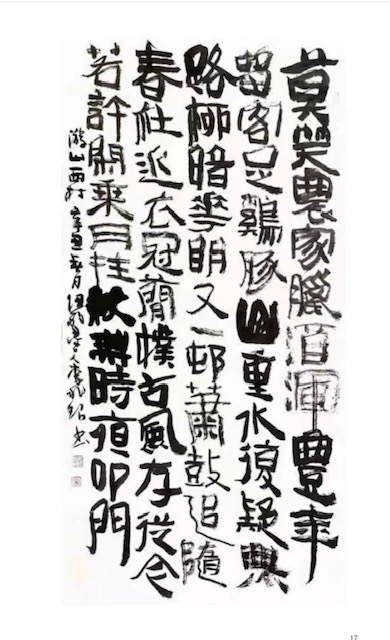 莫笑農家臘酒渾豐年
留客足鷄豚山重水復疑無
路柳暗華明又一邨蕭鼓追隨
春社近衣冠簡樸古風存從今
若許閒乘月拄杖無時夜叩門
游山西村 辛丑春月 書
17